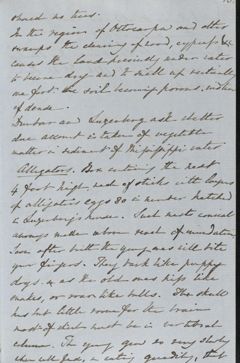 no trees.
In the region of Ottocarpa and other
swamps the clearing of wood, cypress &c
causes the land previously under water
to become dry and to swell up vertically
one foot the soil becoming porous, instead
of dense.
Dunbar and Luzenberg ask whether
due account is taken of vegetable
matter in sediment of Mississippi water.
Alligators. Box containing the nest
4 foot high, made of sticks with layers
of alligators eggs 30 in number hatched
in Luzenberg's house. Such nests conical
always made where reach of inundation
Soon after birth the young ones will bite
your fingers. They bark like puppy
dogs & as the old ones hiss like
snakes, or roar like bulls. The skull
has but little room for the brain
most of which must be in vertebral
column. The young grow
when well fed, in eating quantity, that